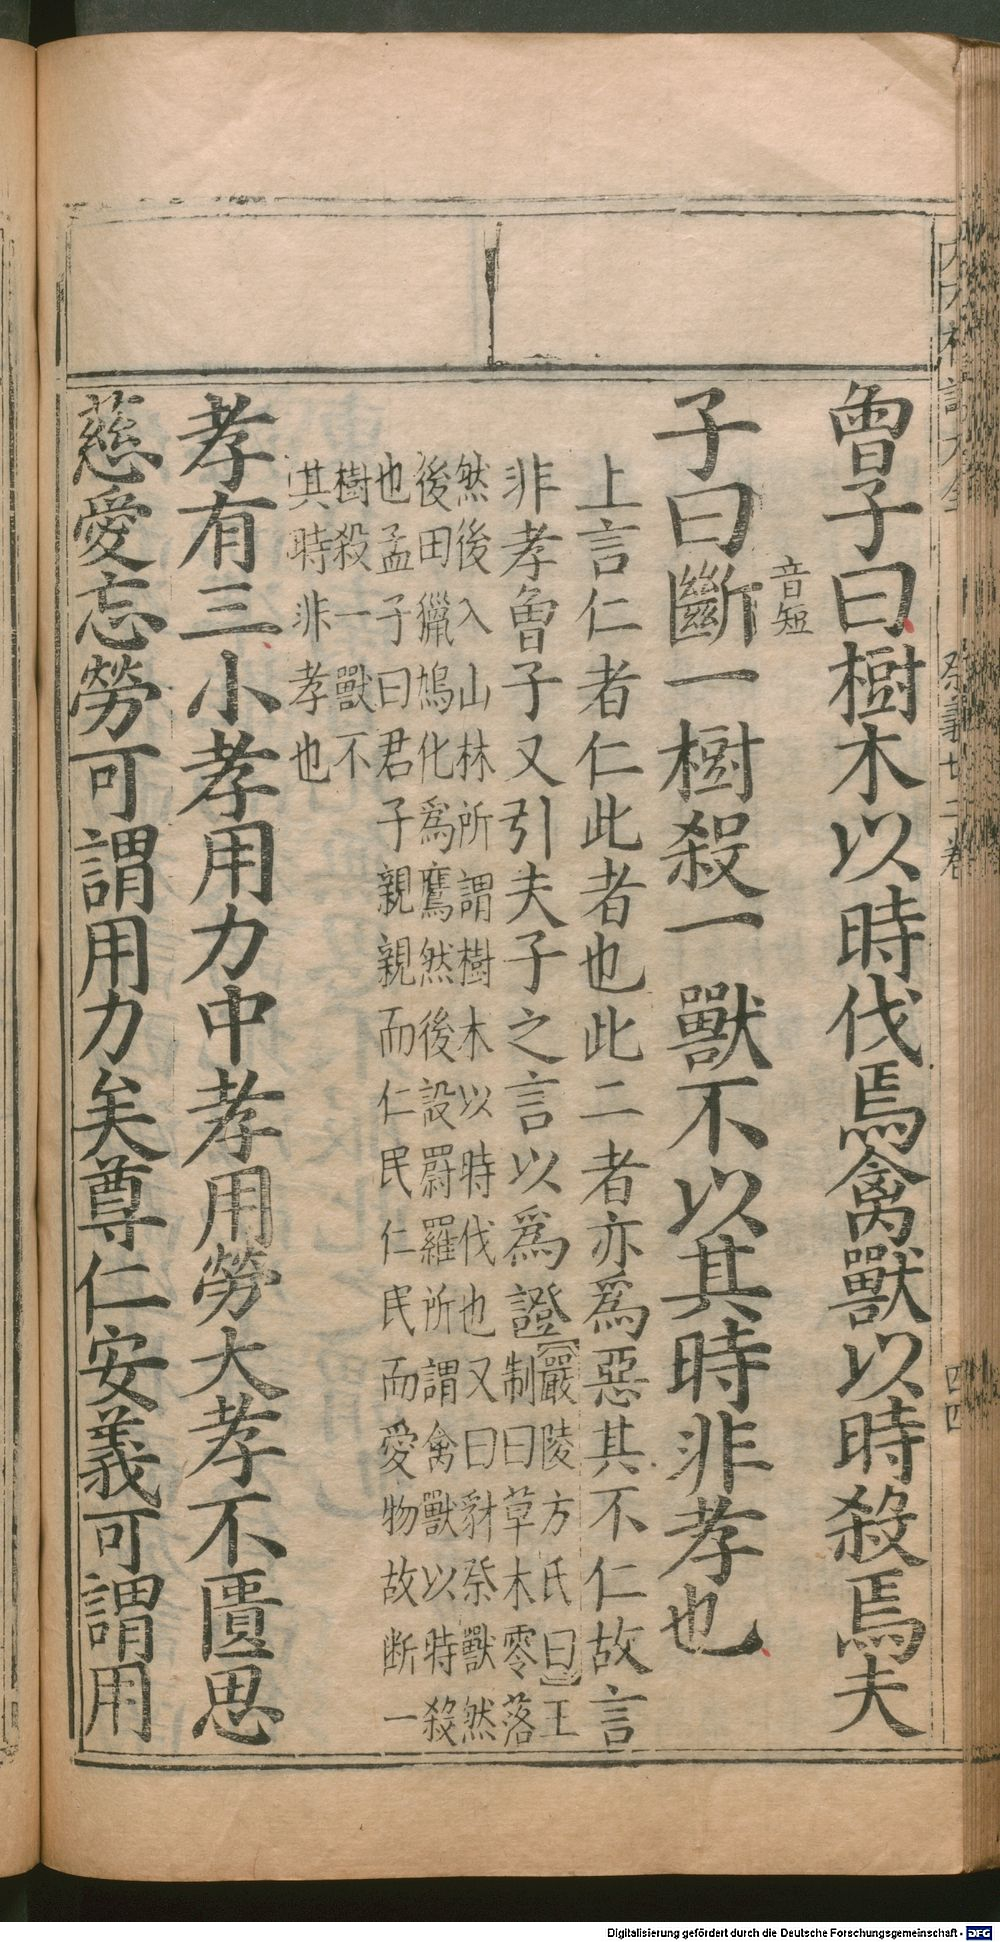 曾子曰樹木以時伐焉禽獸以時殺焉夫
子曰斷一樹殺一獸不以其時非孝也
音短
上言仁者仁此者也此二者亦爲惡其不仁故言
非孝曾子又引夫子之言以爲證【嚴陵方氏曰】王
制曰草木零落
然後入山林所謂樹木以時伐也又曰豺祭獸然
後田獵鳩化爲鷹然後設罻羅所謂禽獸以時殺
也孟子曰君子親親而仁民仁民而愛物故断一
樹殺一獸不
其時非孝也
孝有三小孝用力中孝用勞大孝不匱思
慈愛忘勞可謂用力矣尊仁安義可謂用
祭義廿二卷
四四
Digitalisierung gefördert durch die Deutsche Forschungsgemeinschaft - DFG